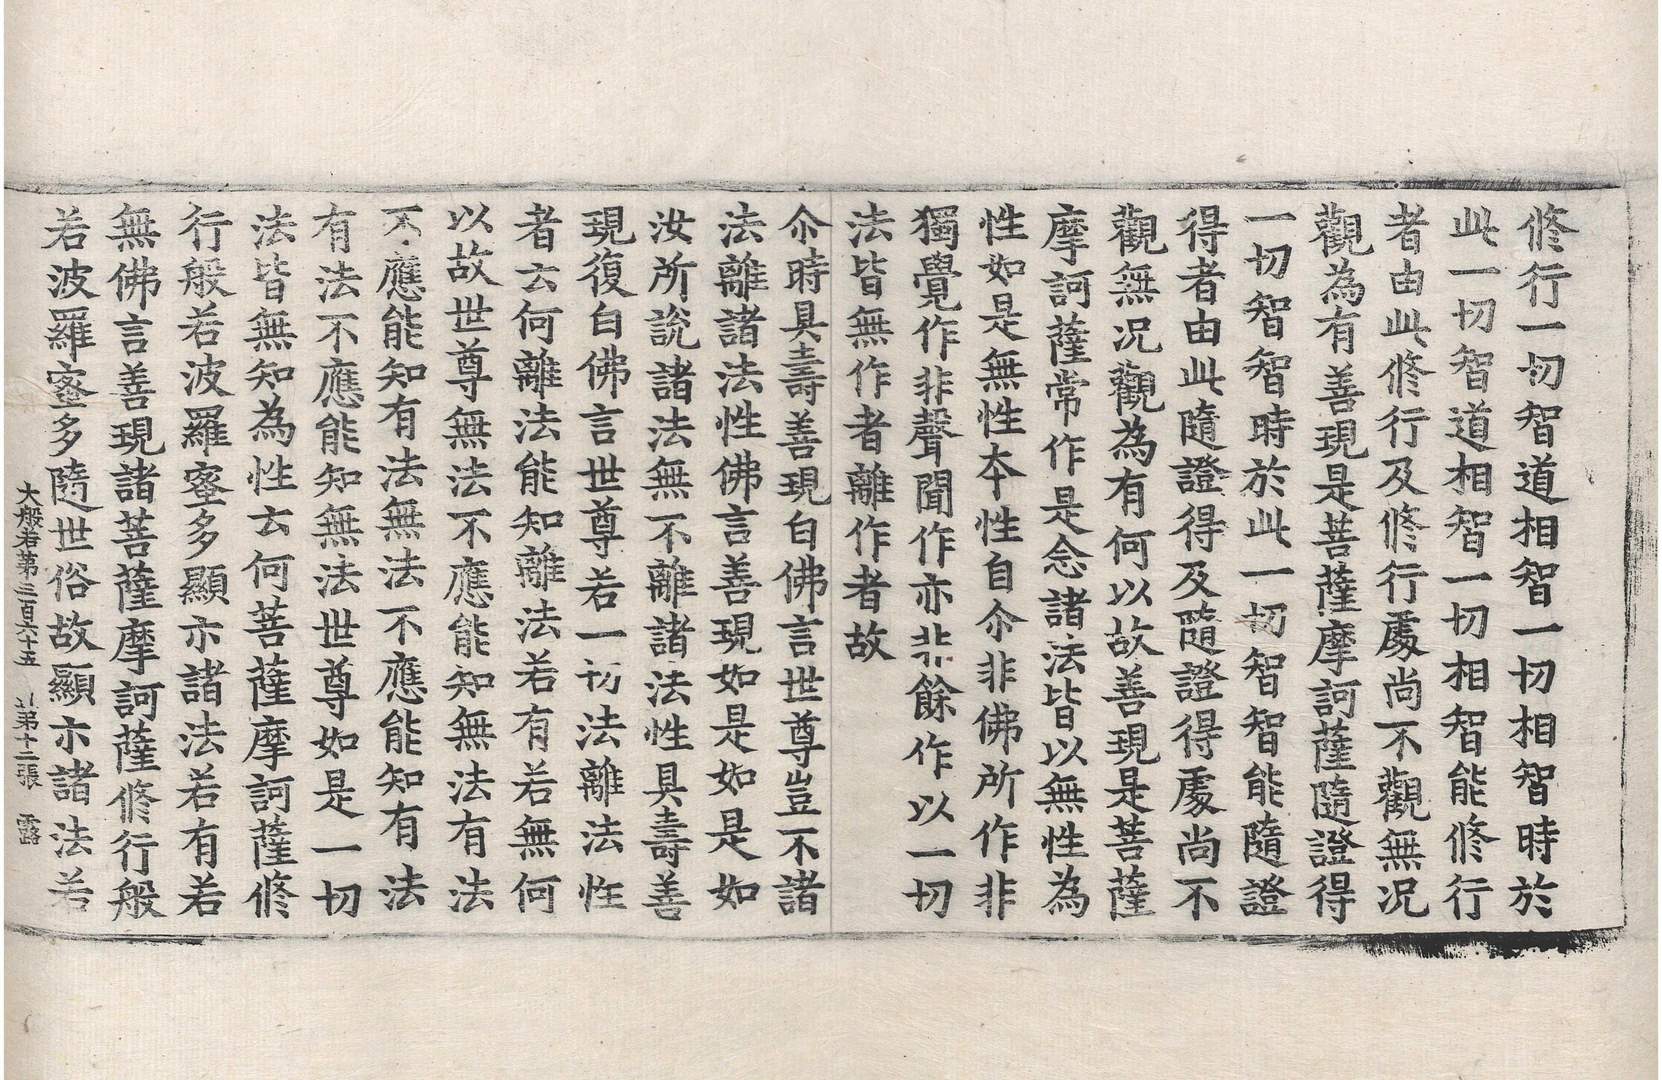 修行一切智道相智一切相智時於
此一切智道相智一切相智能修行
者由此修行及修行處尚不觀無况
觀為有善現是菩薩摩訶薩隨證得
一切智智時於此一切智智能隨證
得者由此隨證得及隨證得處尚不
觀無况觀為有何以故善現是菩薩
摩訶薩常作是念諸法皆以無性為
性如是無性本性自尒非佛所作非
獨覺作非聲聞作亦非餘作以一切
法皆無作者離作者故
尒時具壽善現白佛言世尊豈不諸
法離諸法性佛言善現如是如是如
汝所說諸法無不離諸法性具壽善
現復白佛言世尊若一切法離法性
者云何離法能知離法若有若無何
以故世尊無法不應能知無法有法
不應能知有法無法不應能知有法
有法不應能知無法世尊如是一切
法皆無知為性云何菩薩摩訶薩修
行般若波羅蜜多顯示諸法若有若
無佛言善現諸菩薩摩訶薩修行般
若波羅蜜多隨世俗故顯示諸法若
大般若第三百六十五 第十二張 露